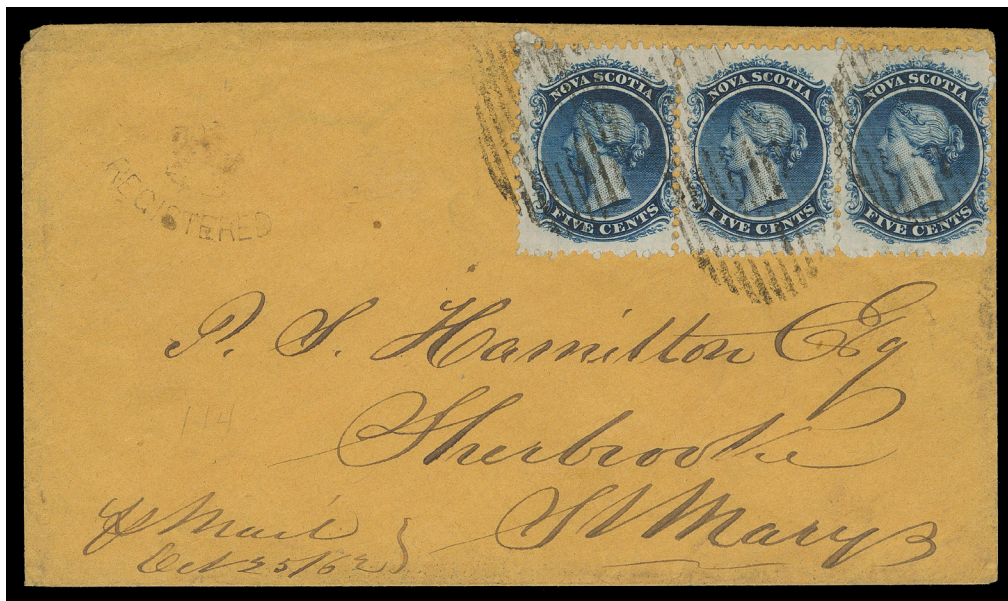 NOVA SCOTIA
FIVE CENTS
NOVA SCOTIA
FIVE CENTS
NOVA SCOTIA
FIVE CENTS
REGISTERED
P. S. Hamilton Esq
Sherbrooke
114
St Marys
Mail
Oct 25/62